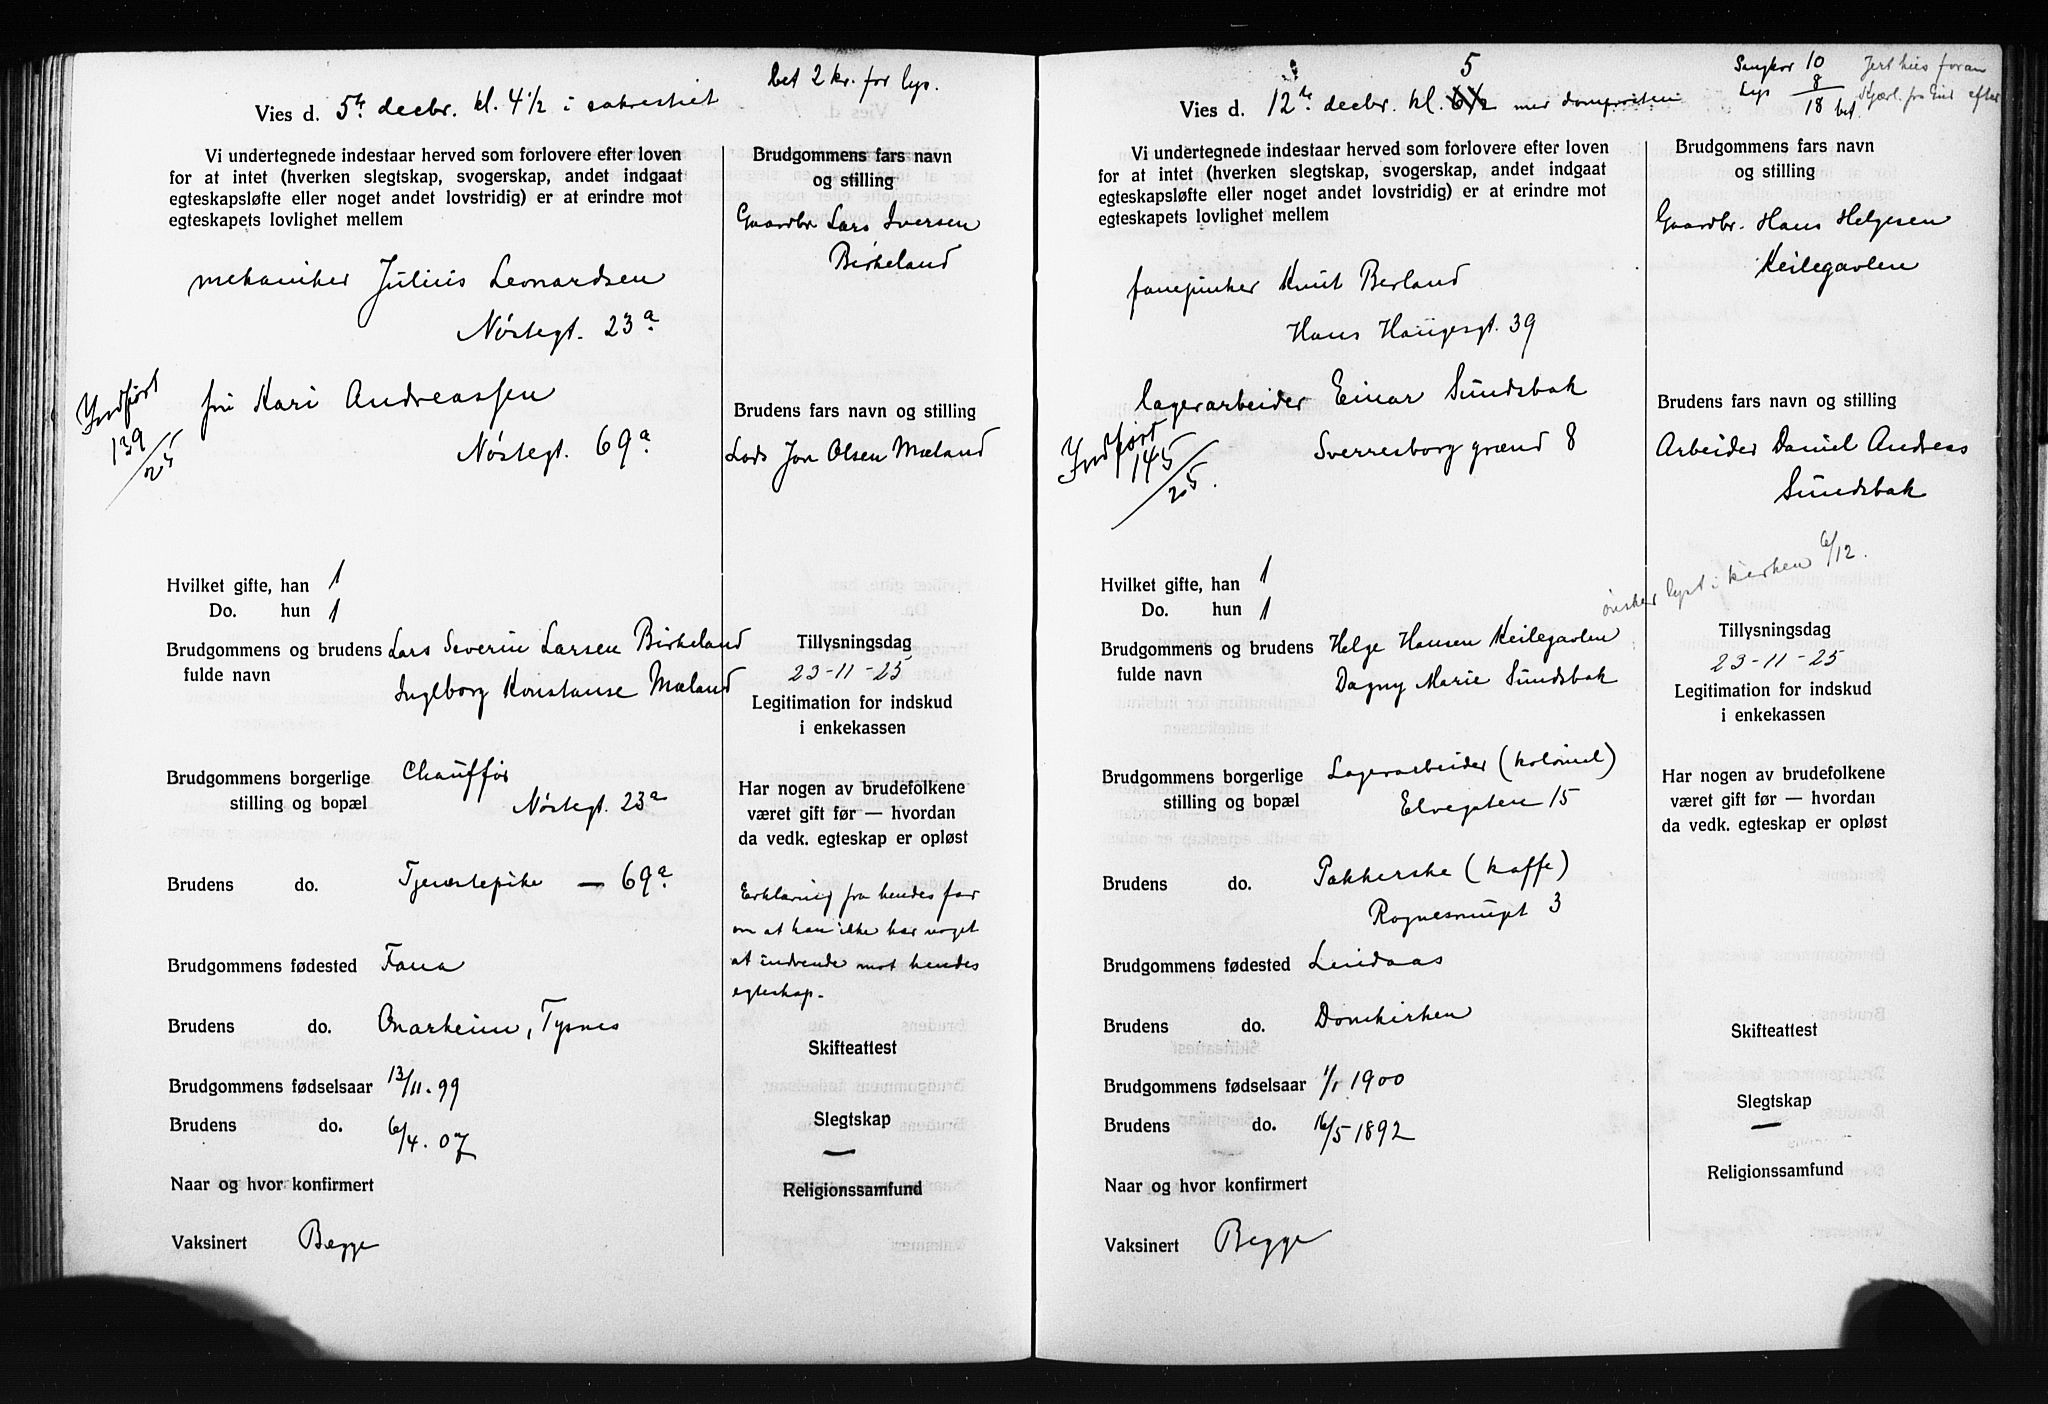 bet 2 kr. for lys.
Vies d. 5te decbr. kl. 4 1/2 i sakrestiet
Vi undertegnede indestaar herved som forlovere efter loven
for at intet (hverken slegtskap, svogerskap, andet indgaat
egteskapsløfte eller noget andet lovstridig) er at erindre mot
egteskapets lovlighet mellem
mekaniker Julius Leonardsen
Nøstegt. 23a
Indført
139
25
fru Kari Andreassen
Nøstegt. 69a
Hvilket gifte, han 1
Do. hun 1
Brudgommens og brudens Lars Severin Larsen Birkeland
fulde navn Ingeborg Konstanse Mæland
Brudgommens borgerlige Chauffør
stilling og bopæl Nøstegt. 23a
Brudens do. Tjenestepike — 69a
Brudgommens fødested Fana
Brudens do. Onarheim, Tysnes
Brudgommens fødselsaar 13/11. 99
Brudens do. 6/4. 07
Naar og hvor konfirmert
Vaksinert Begge
Brudgommens fars navn
og stilling
Gaardbr Lars Iversen
Birkeland
Brudens fars navn og stilling
Lods Jon Olsen Mæland
Tillysningsdag
23-11-25
Legitimation for indskud
i enkekassen
Har nogen av brudefolkene
været gift før — hvordan
da vedk. egteskap er opløst
Erklæring fra hendes far
om at han ikke har noget
at indvende mot hendes
egteskap.
Skifteattest
Slegtskap
—
Religionssamfund
5
Sangkor 10
Lys 8
18 bet.
Vies d. 12te decbr. kl. 6 1/2 med domprosten
Vi undertegnede indestaar herved som forlovere efter loven
for at intet (hverken slegtskap, svogerskap, andet indgaat
egteskapsløfte eller noget andet lovstridig) er at erindre mot
egteskapets lovlighet mellem
Knut Berland
Hans Haugesgt. 39
lagerarbeider Einar Sundsbak
Sverresborg grænd 8
Indført
145
25.
Hvilket gifte, han 1
Do. hun 1
Brudgommens og brudens Helge Hansen Keilegavlen
fulde navn Dagny Marie Sundsbak
Brudgommens borgerlige Lagerarbeider (kolonial)
stilling og bopæl Elvegaten 15
Brudens do. Pakkerske (kaffe)
3
Brudgommens fødested Lindaas
Brudens do. Domkirken
Brudgommens fødselsaar 1/1 1900
Brudens do. 16/5 1892
Naar og hvor konfirmert
Vaksinert Begge
Brudgommens fars navn
og stilling
Gaardbr. Hans Helgesen
Keilegavlen
Brudens fars navn og stilling
Arbeider Daniel Andreas
Sundsbak
ønsker lyst i kirken 6/12.
Tillysningsdag
23-11-25
Legitimation for indskud
i enkekassen
Har nogen av brudefolkene
været gift før — hvordan
da vedk. egteskap er opløst
Skifteattest
Slegtskap
—
Religionssamfund